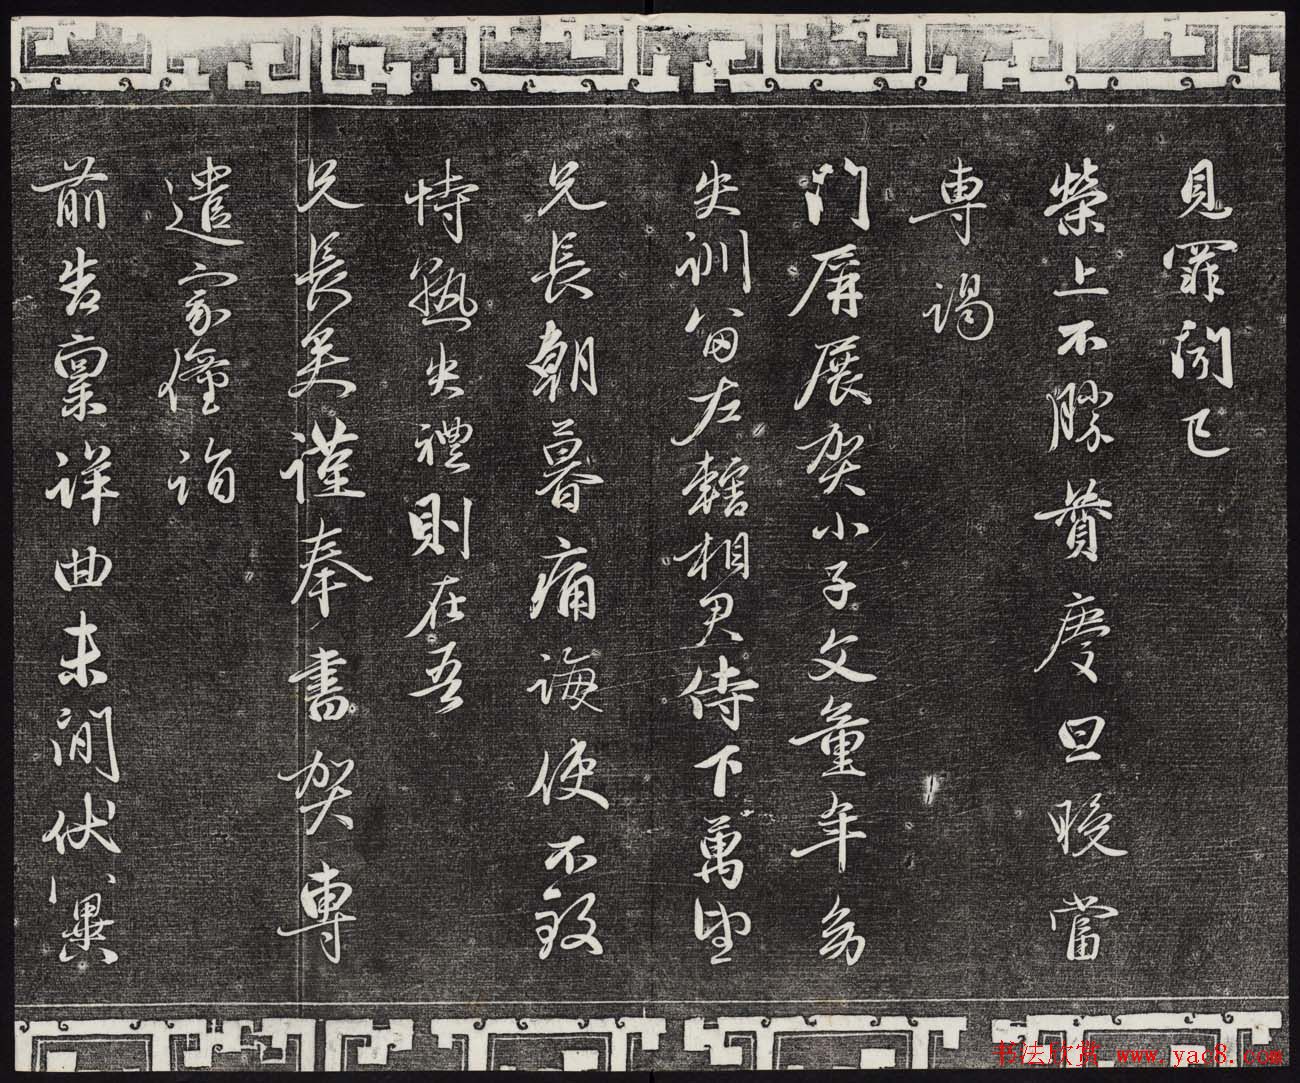 見罪已
榮上不勝贊慶旦晚當
專謁
門屏展賀小子文童年幼
失訓左轄相君侍下萬望
兄長朝暮痛誨使不致
恃熟失禮則在吾
兄長矣謹奉書賀專
遣家僮詣
前告稟詳曲未間伏冀
书法欣赏 www.yac8.com